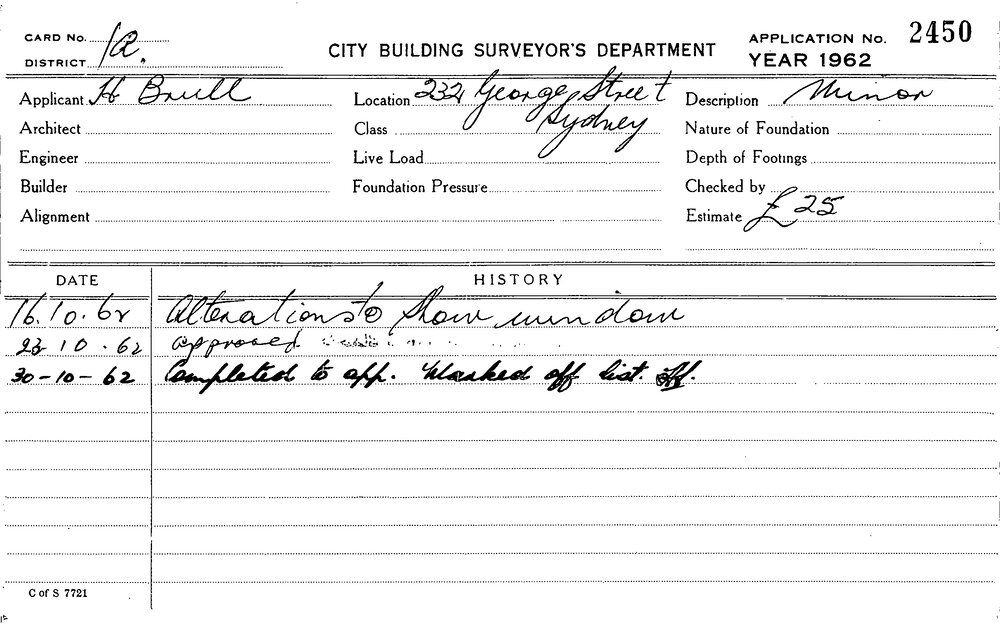 CARD No. 1A.
DISTRICT
CITY BUILDING SURVEYOR'S DEPARTMENT
APPLICATION No. 2450
YEAR 1962
Applicant H Brull Location 232 George Street Description Minor
Architect Class Sydney Nature of Foundation
Engineer Live Load Depth of Footings
Builder Foundation Pressure Checked by
Alignment Estimate £25
DATE HISTORY
16.10.62 Alterations to Show window
23 10.62 approved
30-10-62 Completed to app. Marked off list.
C of S 7721